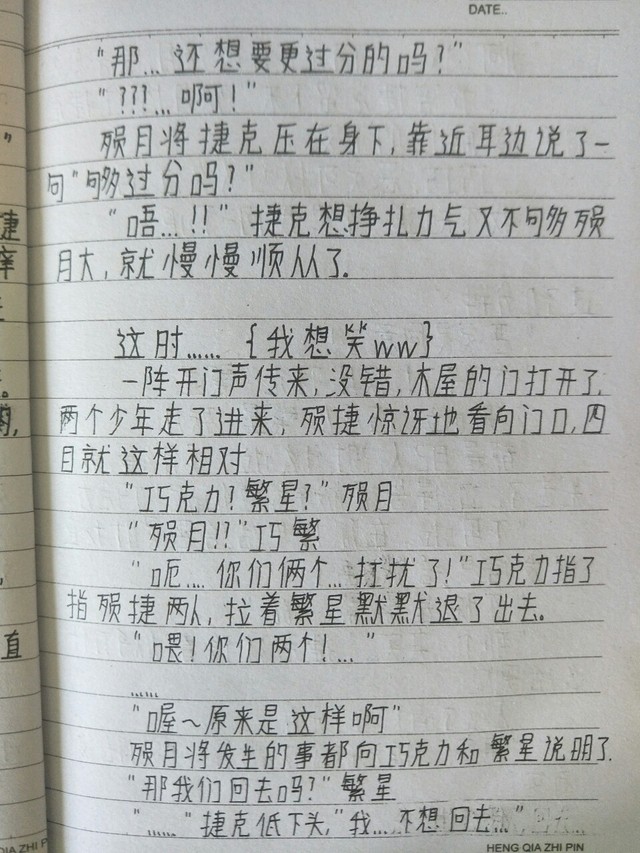 DATE..
"那... 还想要更过分的吗?"
"???... 啊!"
殒月将捷克压在身下,靠近耳边说了一
句"够过分吗?"
"唔...!!" 捷克想挣扎力气又不够殒
月大,就慢慢顺从了.
这时...... {我想笑ww}
一阵开门声传来,没错,木屋的门打开了.
两个少年走了进来,殒捷惊讶地看向门口,四
目就这样相对
"巧克力?繁星?"殒月
"殒月!!"巧繁
"呃.... 你们俩个... 打扰了!"巧克力指了
指殒捷两人,拉着繁星默默退了出去.
"喂!你们两个!..."
......
"喔~原来是这样啊"
殒月将发生的事都向巧克力和繁星说明了.
"那我们回去吗?"繁星
"......"捷克低下头,"我.... 不想回去..."
HENG QIA ZHI PIN
捷
直